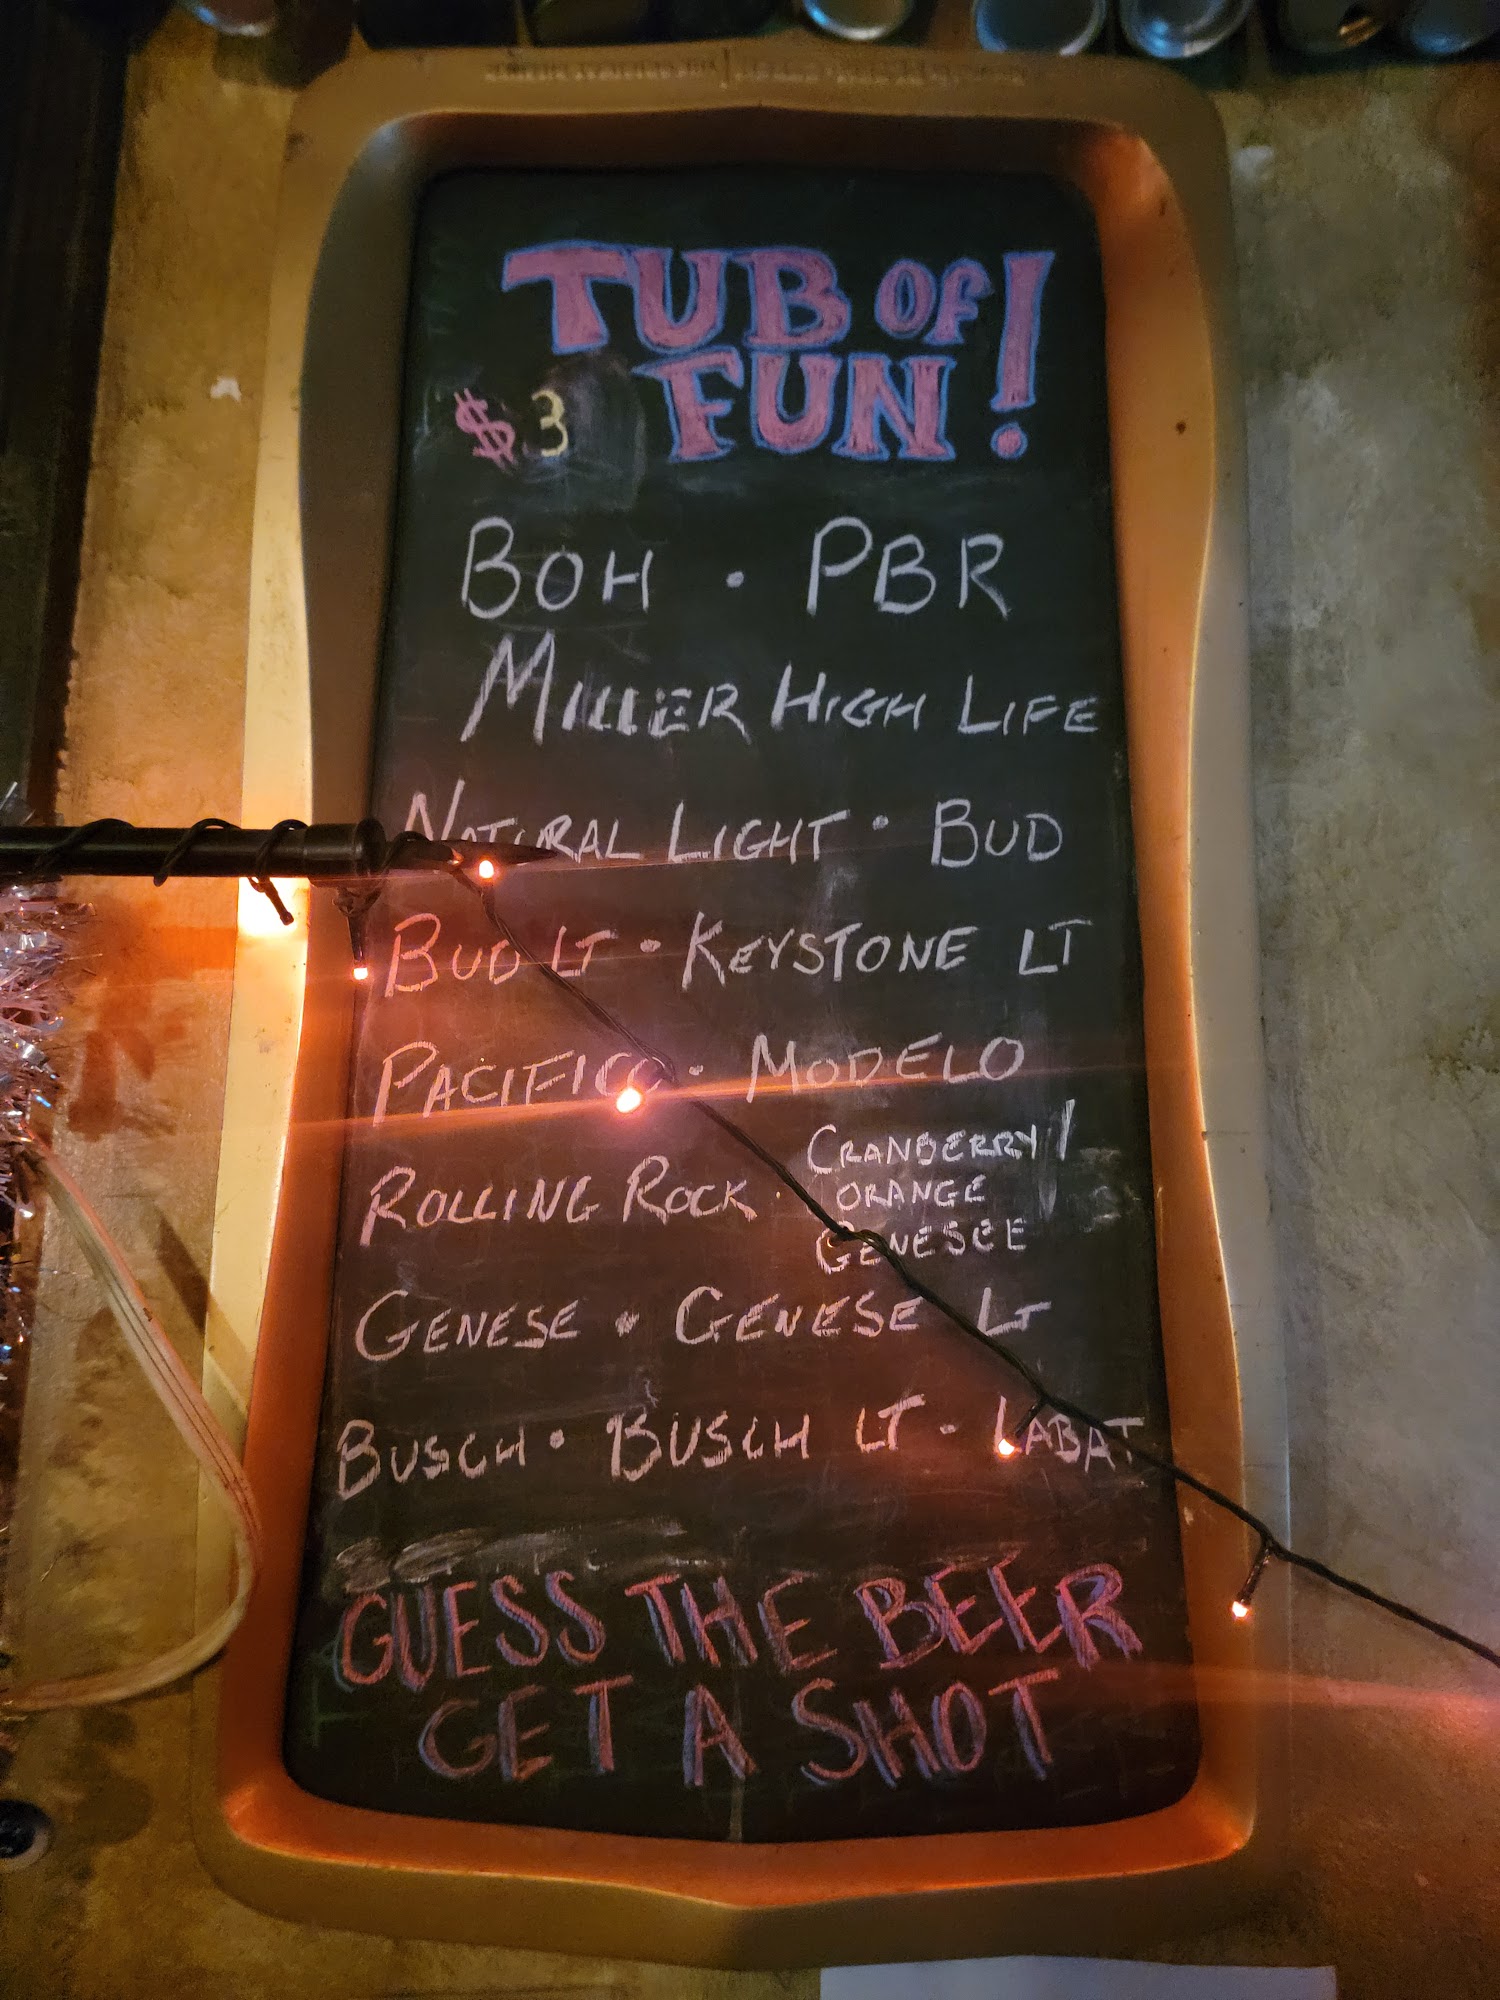 TUB OF
FUN!
$3
BOH • PBR
MILLER HIGH LIFE
NATURAL LIGHT • BUD
BUD LT • KEYSTONE LT
PACIFICO • MODELO
ROLLING ROCK • CRANBERRY/
ORANGE
GENESEE
GENESE • GENESE LT
BUSCH • BUSCH LT • LABAT
GUESS THE BEER
GET A SHOT